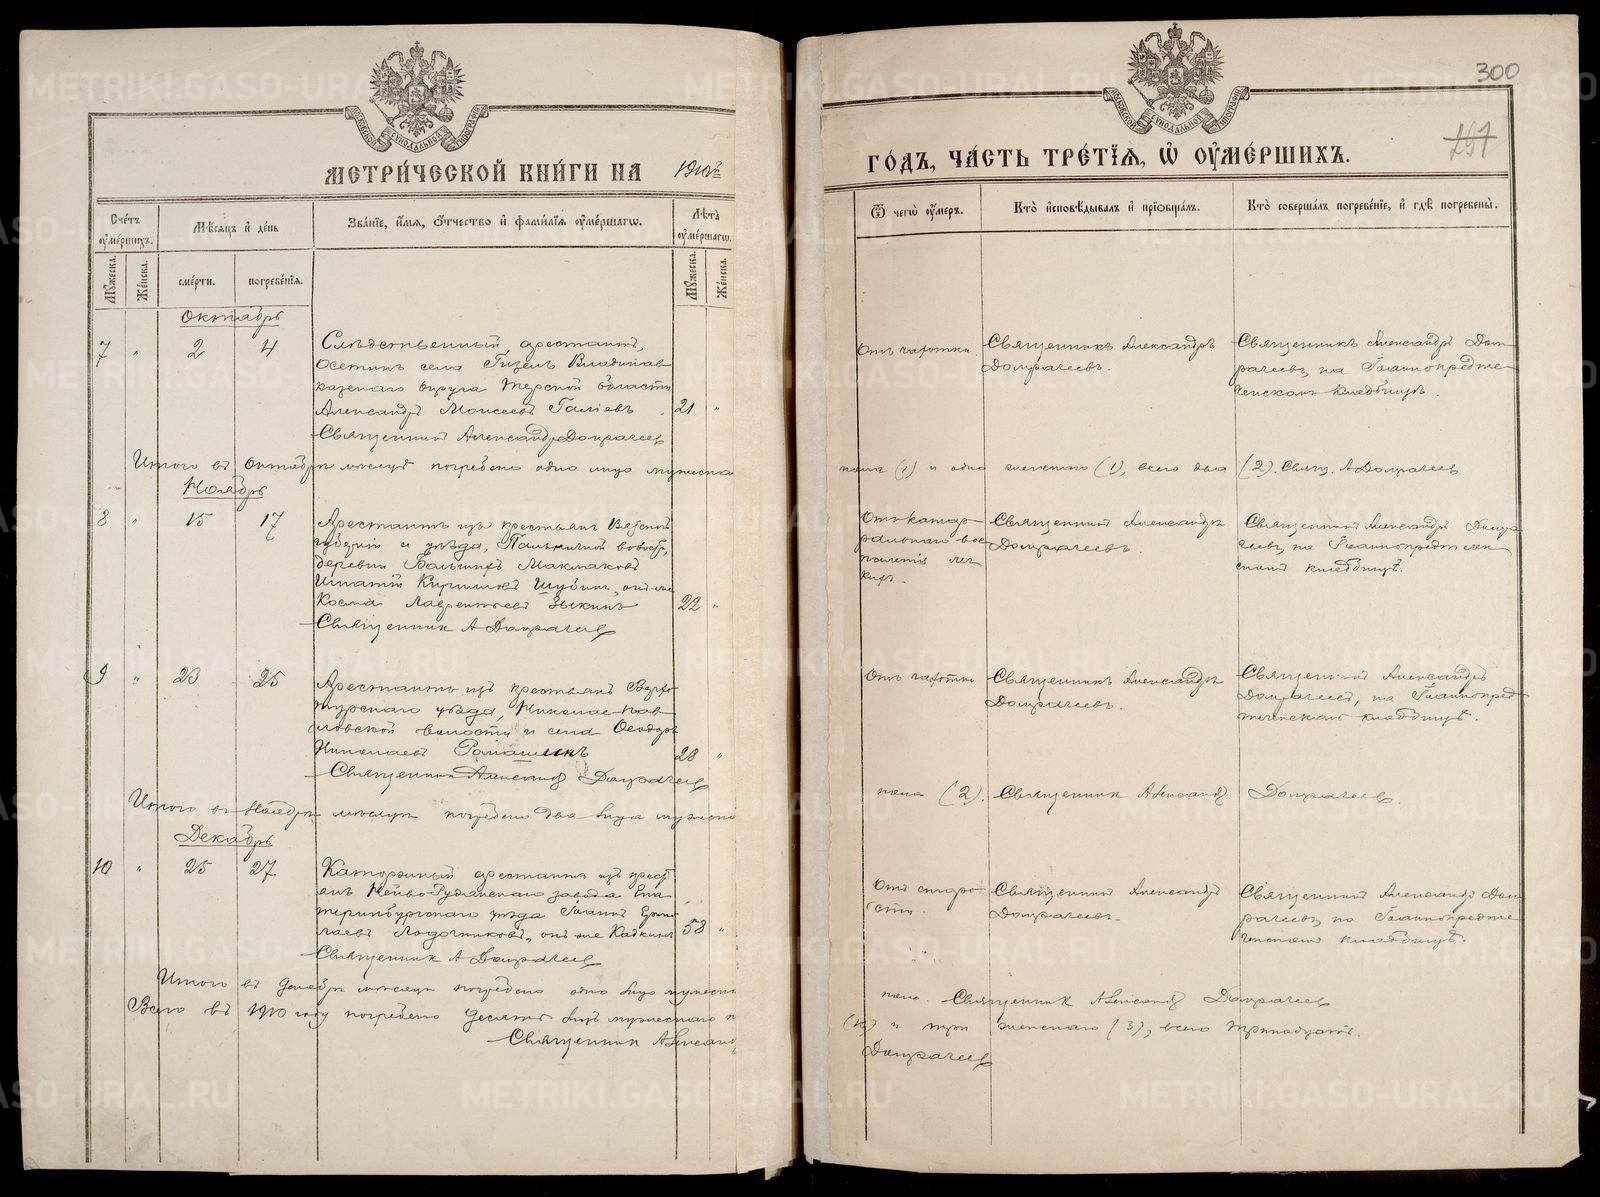 300
251
МЕТРИЧЕСКОЙ КНИГИ НА 1910й
ГОДЪ, ЧАСТЬ ТРЕТІЯ, Ѡ ОУМЕРШИХЪ.
Счетъ оумершихъ.
Мѣсяцъ и день
Званіе, имя, отчество и фамилія оумершагѡ.
Лѣта оумершагѡ.
Мужеска.
Женска.
смерти.
погребенія.
Мужеска.
Женска.
Ѿ чегѡ оумеръ.
Кто исповѣдывалъ и пріобщалъ.
Кто совершалъ погребеніе, и гдѣ погребены.
Октябрь
7 " 2 4
Слѣдственный арестантъ,
осетинъ села Гизель Владикав-
казскаго округа Терской области
Александръ Моисеевъ Галіевъ 21 "
Священникъ Александръ Домрачеевъ
Отъ чахотки.
Священникъ Александръ
Домрачеевъ.
Священникъ Александръ Дом-
рачеевъ, на Іоаннопредте-
ченскомъ кладбищѣ.
Итого въ Октябрѣ мѣсяцѣ погребено одно лицо мужеска
пола (1) и одно женскаго (1), всего два (2). Свящ. А Домрачеевъ
Ноябрь
8 " 15 17
Арестантъ изъ крестьянъ Вятской
губерніи и уѣзда, волости,
деревни Большихъ Маклаковъ
Игнатій Кирилловъ Шубинъ, онъ же
Косма Лаврентьевъ Зыкинъ 22 "
Священникъ А Домрачеевъ
Отъ катар-
ральнаго вос-
паленія лег-
кихъ.
Священникъ Александръ
Домрачеевъ.
Священникъ Александръ Домра-
чеевъ, на Іоаннопредтечен-
скомъ кладбищѣ.
9 " 23 25
Арестантъ изъ крестьянъ Верхо-
турскаго уѣзда, Николае-Пав-
ловской волости и села Ѳеодоръ
Николаевъ Ромашинъ 28 "
Священникъ Александръ Домрачеевъ
Отъ чахотки
Священникъ Александръ
Домрачеевъ.
Священникъ Александръ
Домрачеевъ, на Іоаннопред-
теченскомъ кладбищѣ.
Итого въ Ноябрѣ мѣсяцѣ погребено два лица мужеска
пола (2). Священникъ Александръ Домрачеевъ.
Декабрь
10 " 25 27
Каторжный арестантъ изъ крест-
янъ Нейво-Рудянскаго завода Ека-
теринбургскаго уѣзда Іоаннъ Ермо-
лаевъ Лодочниковъ, онъ же Кадкинъ 58 "
Священникъ А Домрачеевъ
Отъ старо-
сти.
Священникъ Александръ
Домрачеевъ.
Священникъ Александръ Дом-
рачеевъ, на Іоаннопредте-
ченскомъ кладбищѣ.
Итого въ Декабрѣ мѣсяцѣ погребено одно лицо мужеска
пола. Священникъ Александръ Домрачеевъ
Всего въ 1910 году погребено десять лицъ мужескаго п
(10) и три женскаго (3), всего тринадцать.
Священникъ Александръ
Домрачеевъ
METRIKI.GASO-URAL.RU